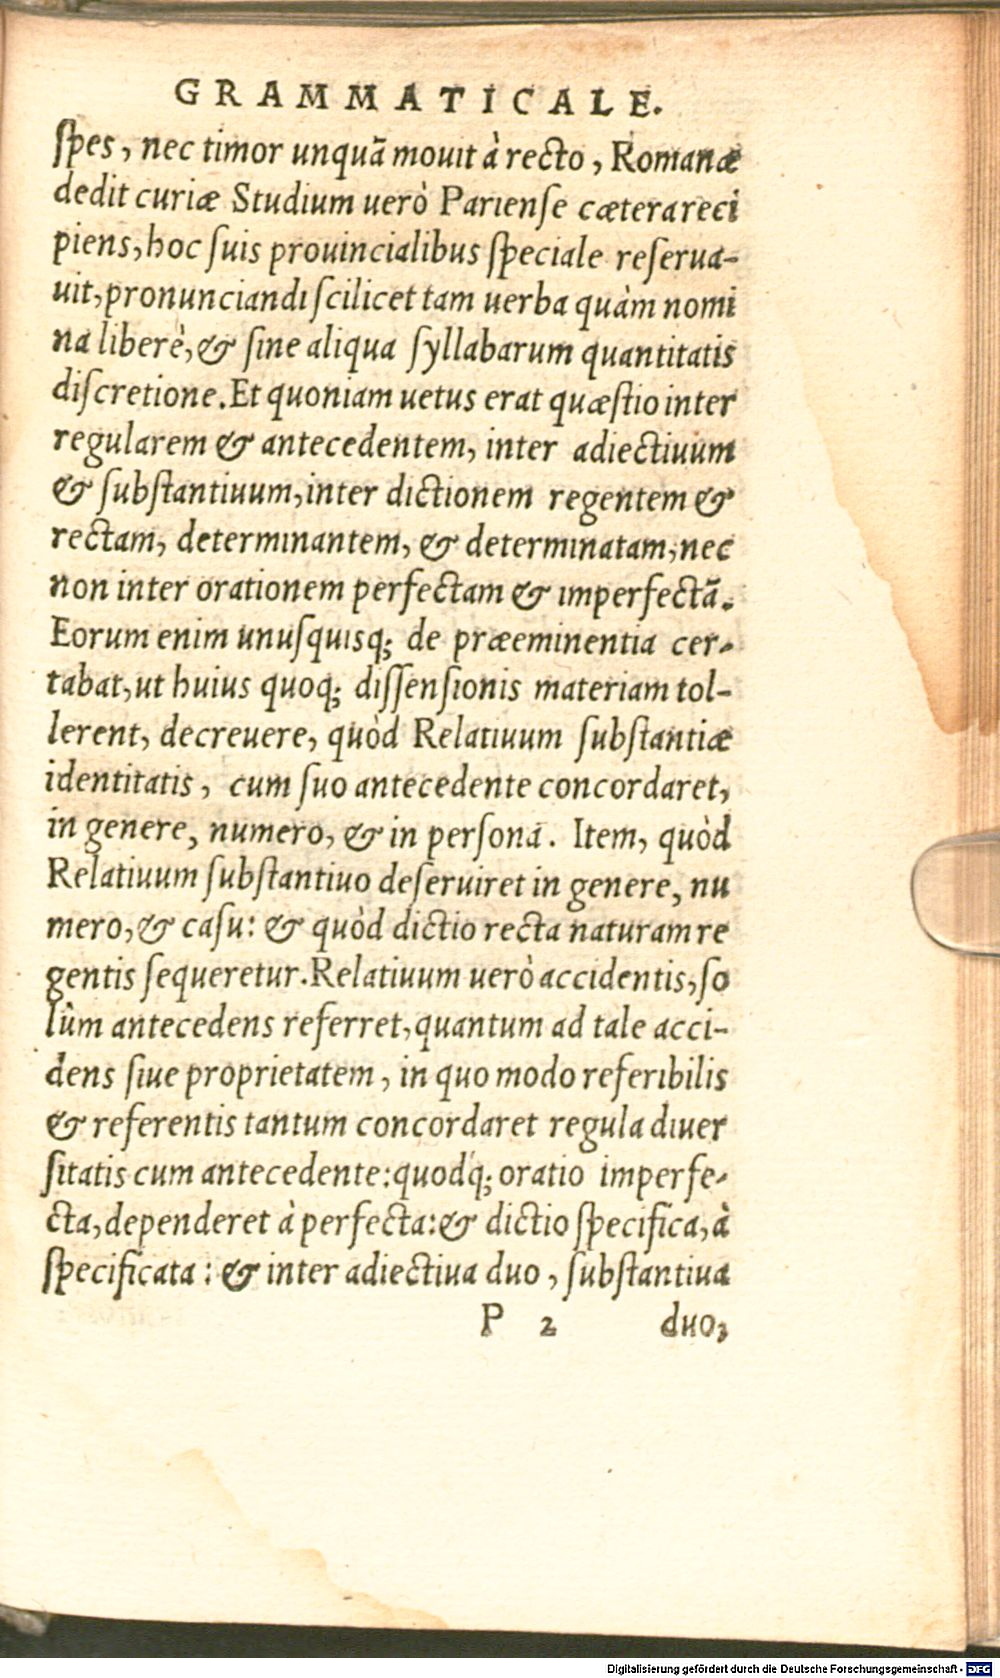 GRAMMATICALE.
ſpes, nec timor unquã mouit à recto, Romanæ
dedit curiæ Studium uerò Pariense cætera reci
piens, hoc ſuis prouincialibus ſpeciale reſerua-
uit, pronunciandi ſcilicet tam uerba quàm nomi
na liberè, & ſine aliqua ſyllabarum quantitatis
diſcretione. Et quoniam uetus erat quæſtio inter
regularem & antecedentem, inter adiectiuum
& ſubſtantiuum, inter dictionem regentem &
rectam, determinantem, & determinatam, nec
non inter orationem perfectam & imperfectã.
Eorum enim unuſquisq; de præeminentia cer-
tabat, ut huius quoq; diſſenſionis materiam tol-
lerent, decreuere, quòd Relatiuum ſubſtantiæ
identitatis, cum ſuo antecedente concordaret,
in genere, numero, & in perſona. Item, quòd
Relatiuum ſubſtantiuo deſeruiret in genere, nu
mero, & caſu: & quòd dictio recta naturam re
gentis ſequeretur. Relatiuum uerò accidentis, ſo
lùm antecedens referret, quantum ad tale acci-
dens ſiue proprietatem, in quo modo referibilis
& referentis tantum concordaret regula diuer
ſitatis cum antecedente: quodq; oratio imperfe-
cta, dependeret à perfecta: & dictio ſpecifica, à
ſpecificata: & inter adiectiua duo, ſubſtantiua
P 2 duo,
Digitalisierung gefördert durch die Deutsche Forschungsgemeinschaft - DFG